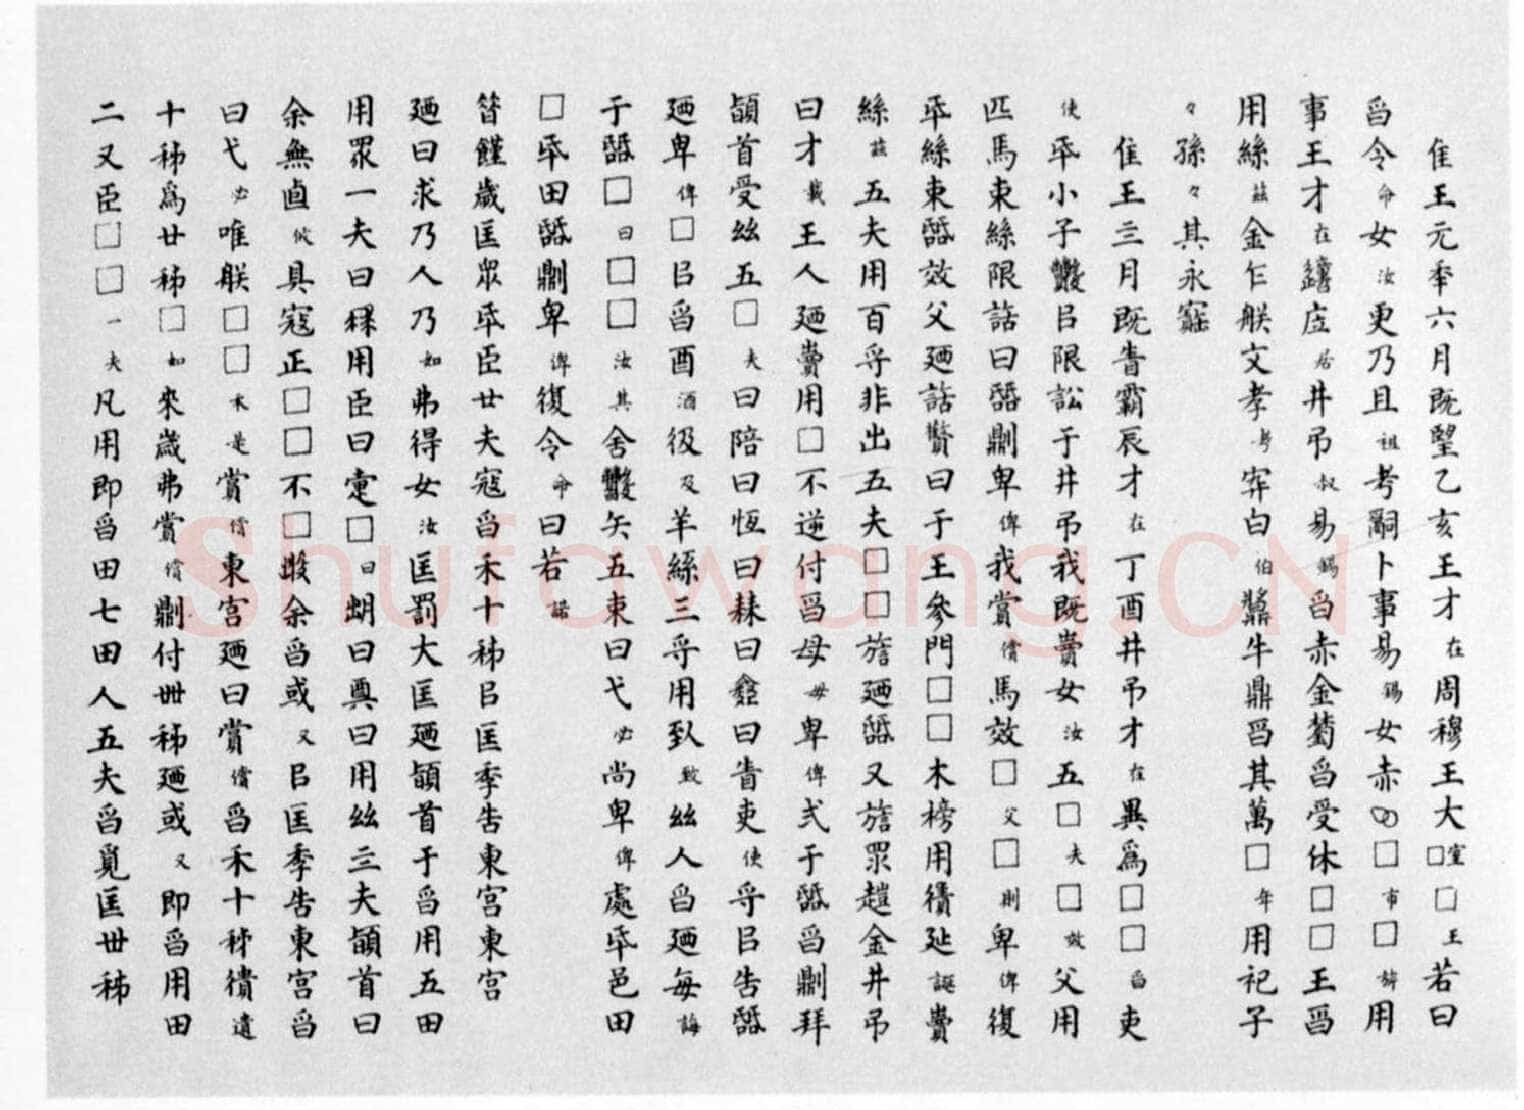 隹王元年六月既望乙亥王才在周穆王大□室□王若曰
曶令命女汝更乃且祖考嗣卜事易錫女赤□市□旂用
事王才在应居井弔叔易錫曶赤金曶受休□□王曶
用絲茲金乍朕文孝考白伯牛鼎曶其萬□年用祀子
々孫々其永寶
隹王三月既眚霸辰才在丁酉井弔才在異爲□□曶吏
使氒小子㠯限訟于井弔我既賣女汝五□夫□效父用
匹馬束絲限誥曰𧧒鼎卑俾我賞償馬效□父□則卑俾復
氒絲束𧧒效父廼誥曰于王參門□□木榜用延誕賣
絲茲五夫用百寽非出五夫□□廼𧧒又眔金井弔
曰才載王人廼賣用□不逆付曶母毋卑俾弍于𧧒曶鼎拜
䭫首受丝五□夫曰陪曰恆曰曰曰眚吏使寽㠯告𧧒
廼卑俾□㠯曶酉酒彶及羊絲三寽用致丝人曶廼每誨
于𧧒□曰□□汝其舍矢五束曰弋必尚卑俾處氒邑田
□氒田𧧒鼎卑俾復令命曰若諾
昔饉歲匡眾氒臣廿夫寇曶禾十秭㠯匡季告東宮東宮
廼曰求乃人乃如弗得女汝匡罰大匡廼䭫首于曶用五田
用眾一夫曰用臣曰疐□曰朏曰奠曰用丝三夫䭫首曰
余無卣攸具寇正□□不□余曶或又㠯匡季告東宮曶
曰弋必唯朕□□禾是賞償東宮廼曰賞償曶禾十秭遺
十秭爲廿秭□如來歲弗賞償鼎付卌秭廼或又即曶用田
二又臣□□一夫凡用即曶田七田人五夫曶覓匡卅秭
Shufawang.CN